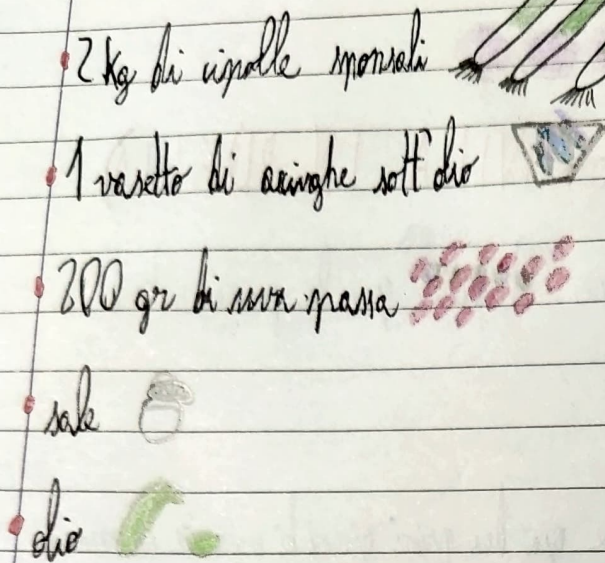 2 kg di cipolle sponsali
1 vasetto di acciughe sott'olio
200 gr di uva passa
sale
olio